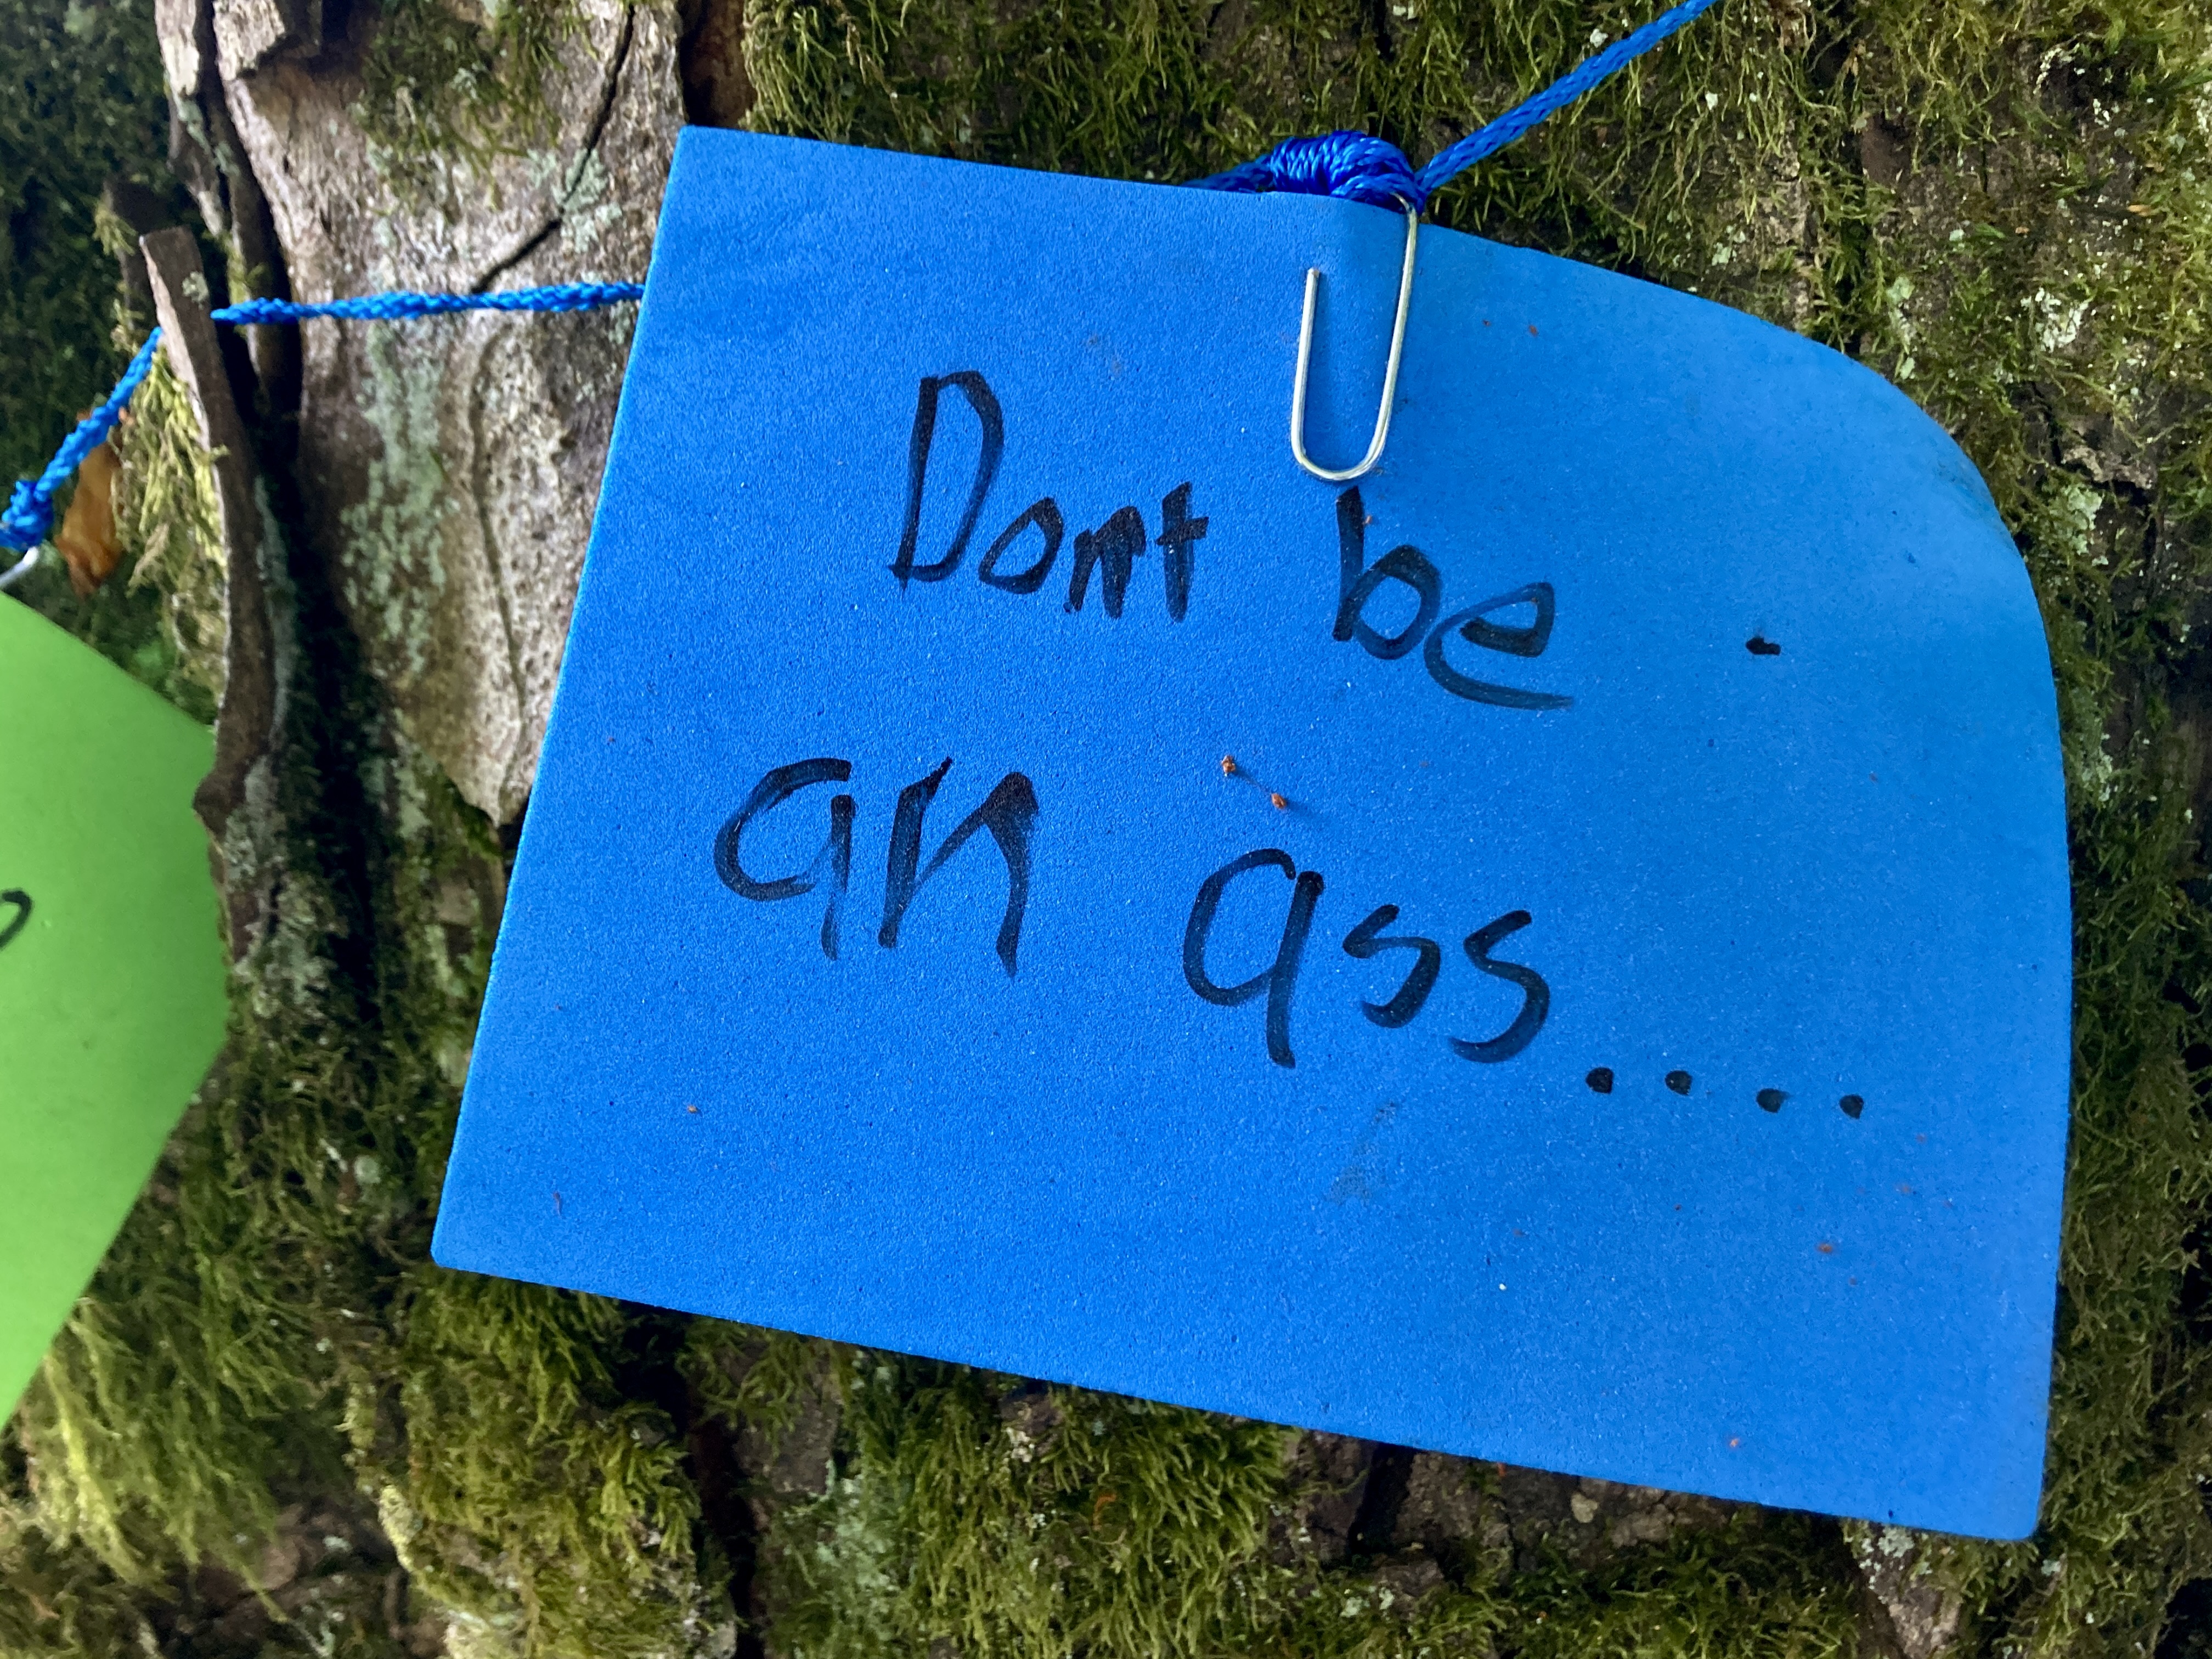 Dont be
an ass....